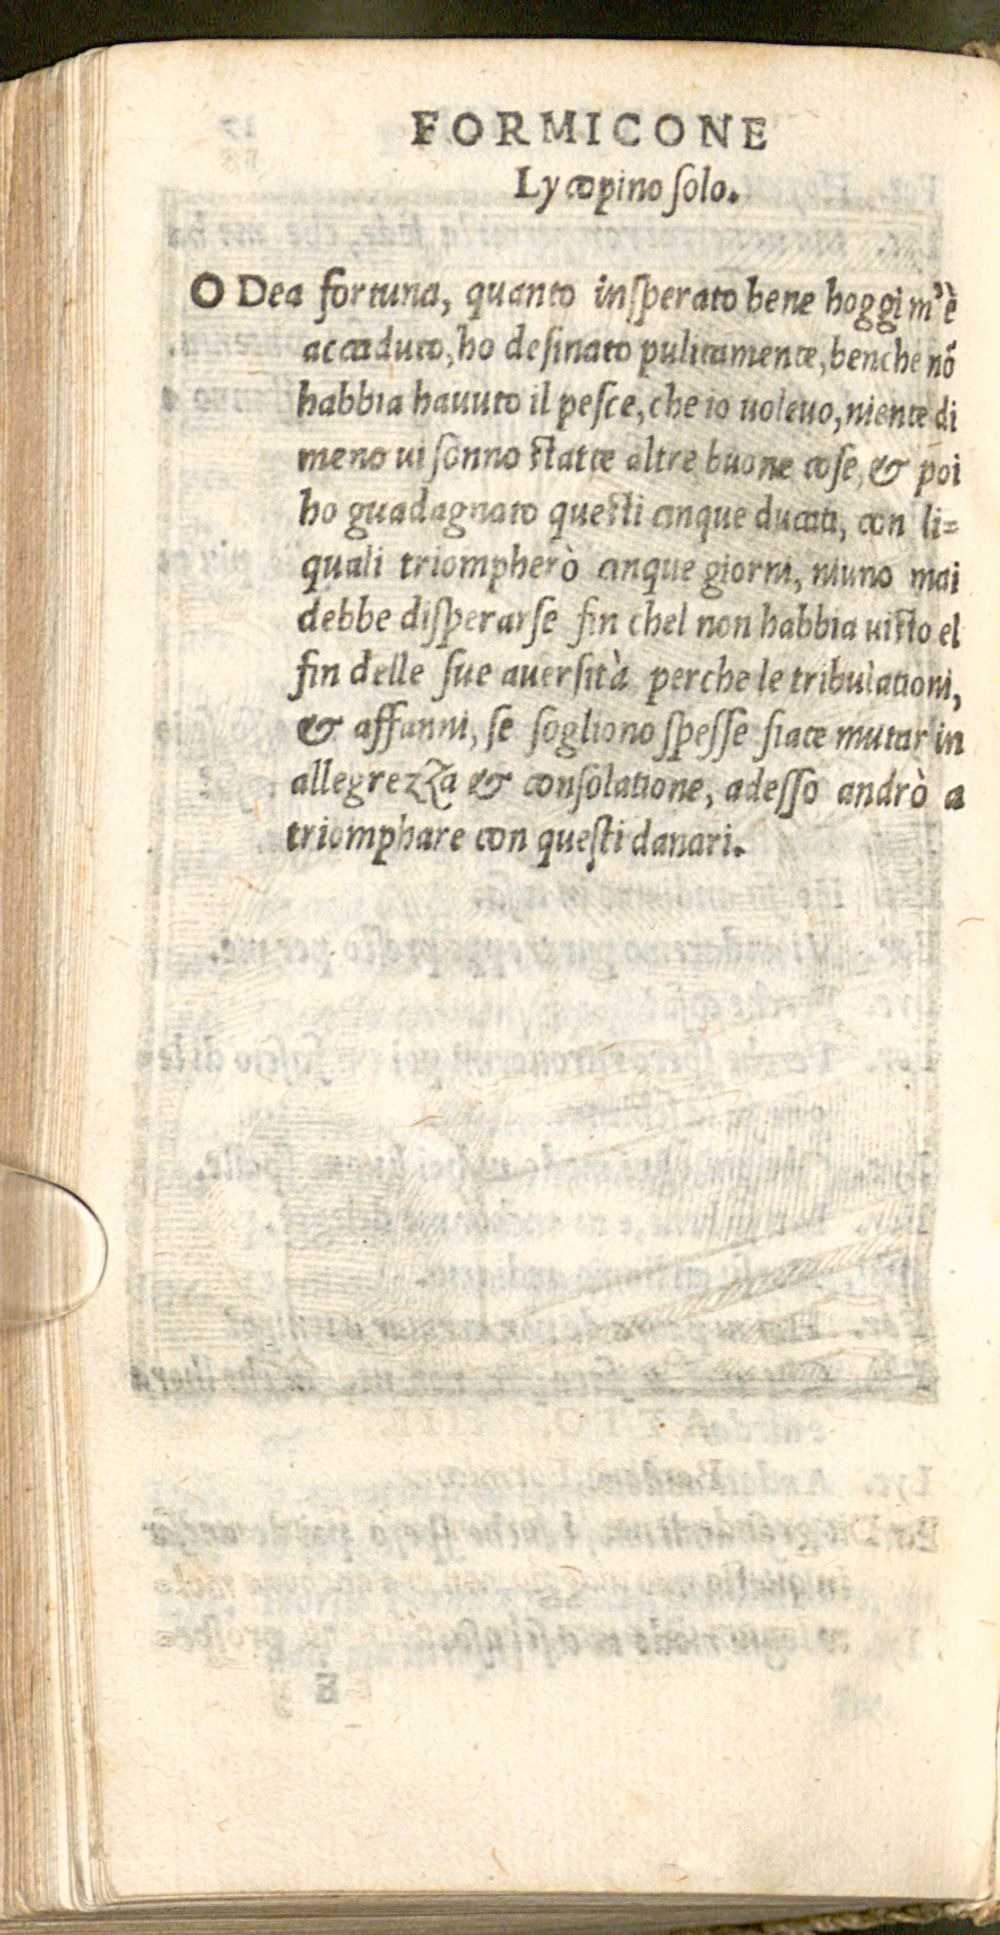 FORMICONE
Lycopino ſolo.
O Dea fortuna, quanto inſperato bene hoggi m'è
accaduto, ho deſinato pulitamente, benche nõ
habbia hauuto il peſce, che io uoleuo, niente di
meno ui ſonno ſtatte altre buone coſe, & poi
ho guadagnato queſti cinque ducati, con li=
quali triompherò cinque giorni, niuno mai
debbe diſperarſe fin chel non habbia uiſto el
fin delle ſue auerſità perche le tribulationi,
& affanni, ſe ſogliono ſpeſſe fiate mutar in
allegrezza & conſolatione, adeſſo andrò a
triomphare con queſti danari.